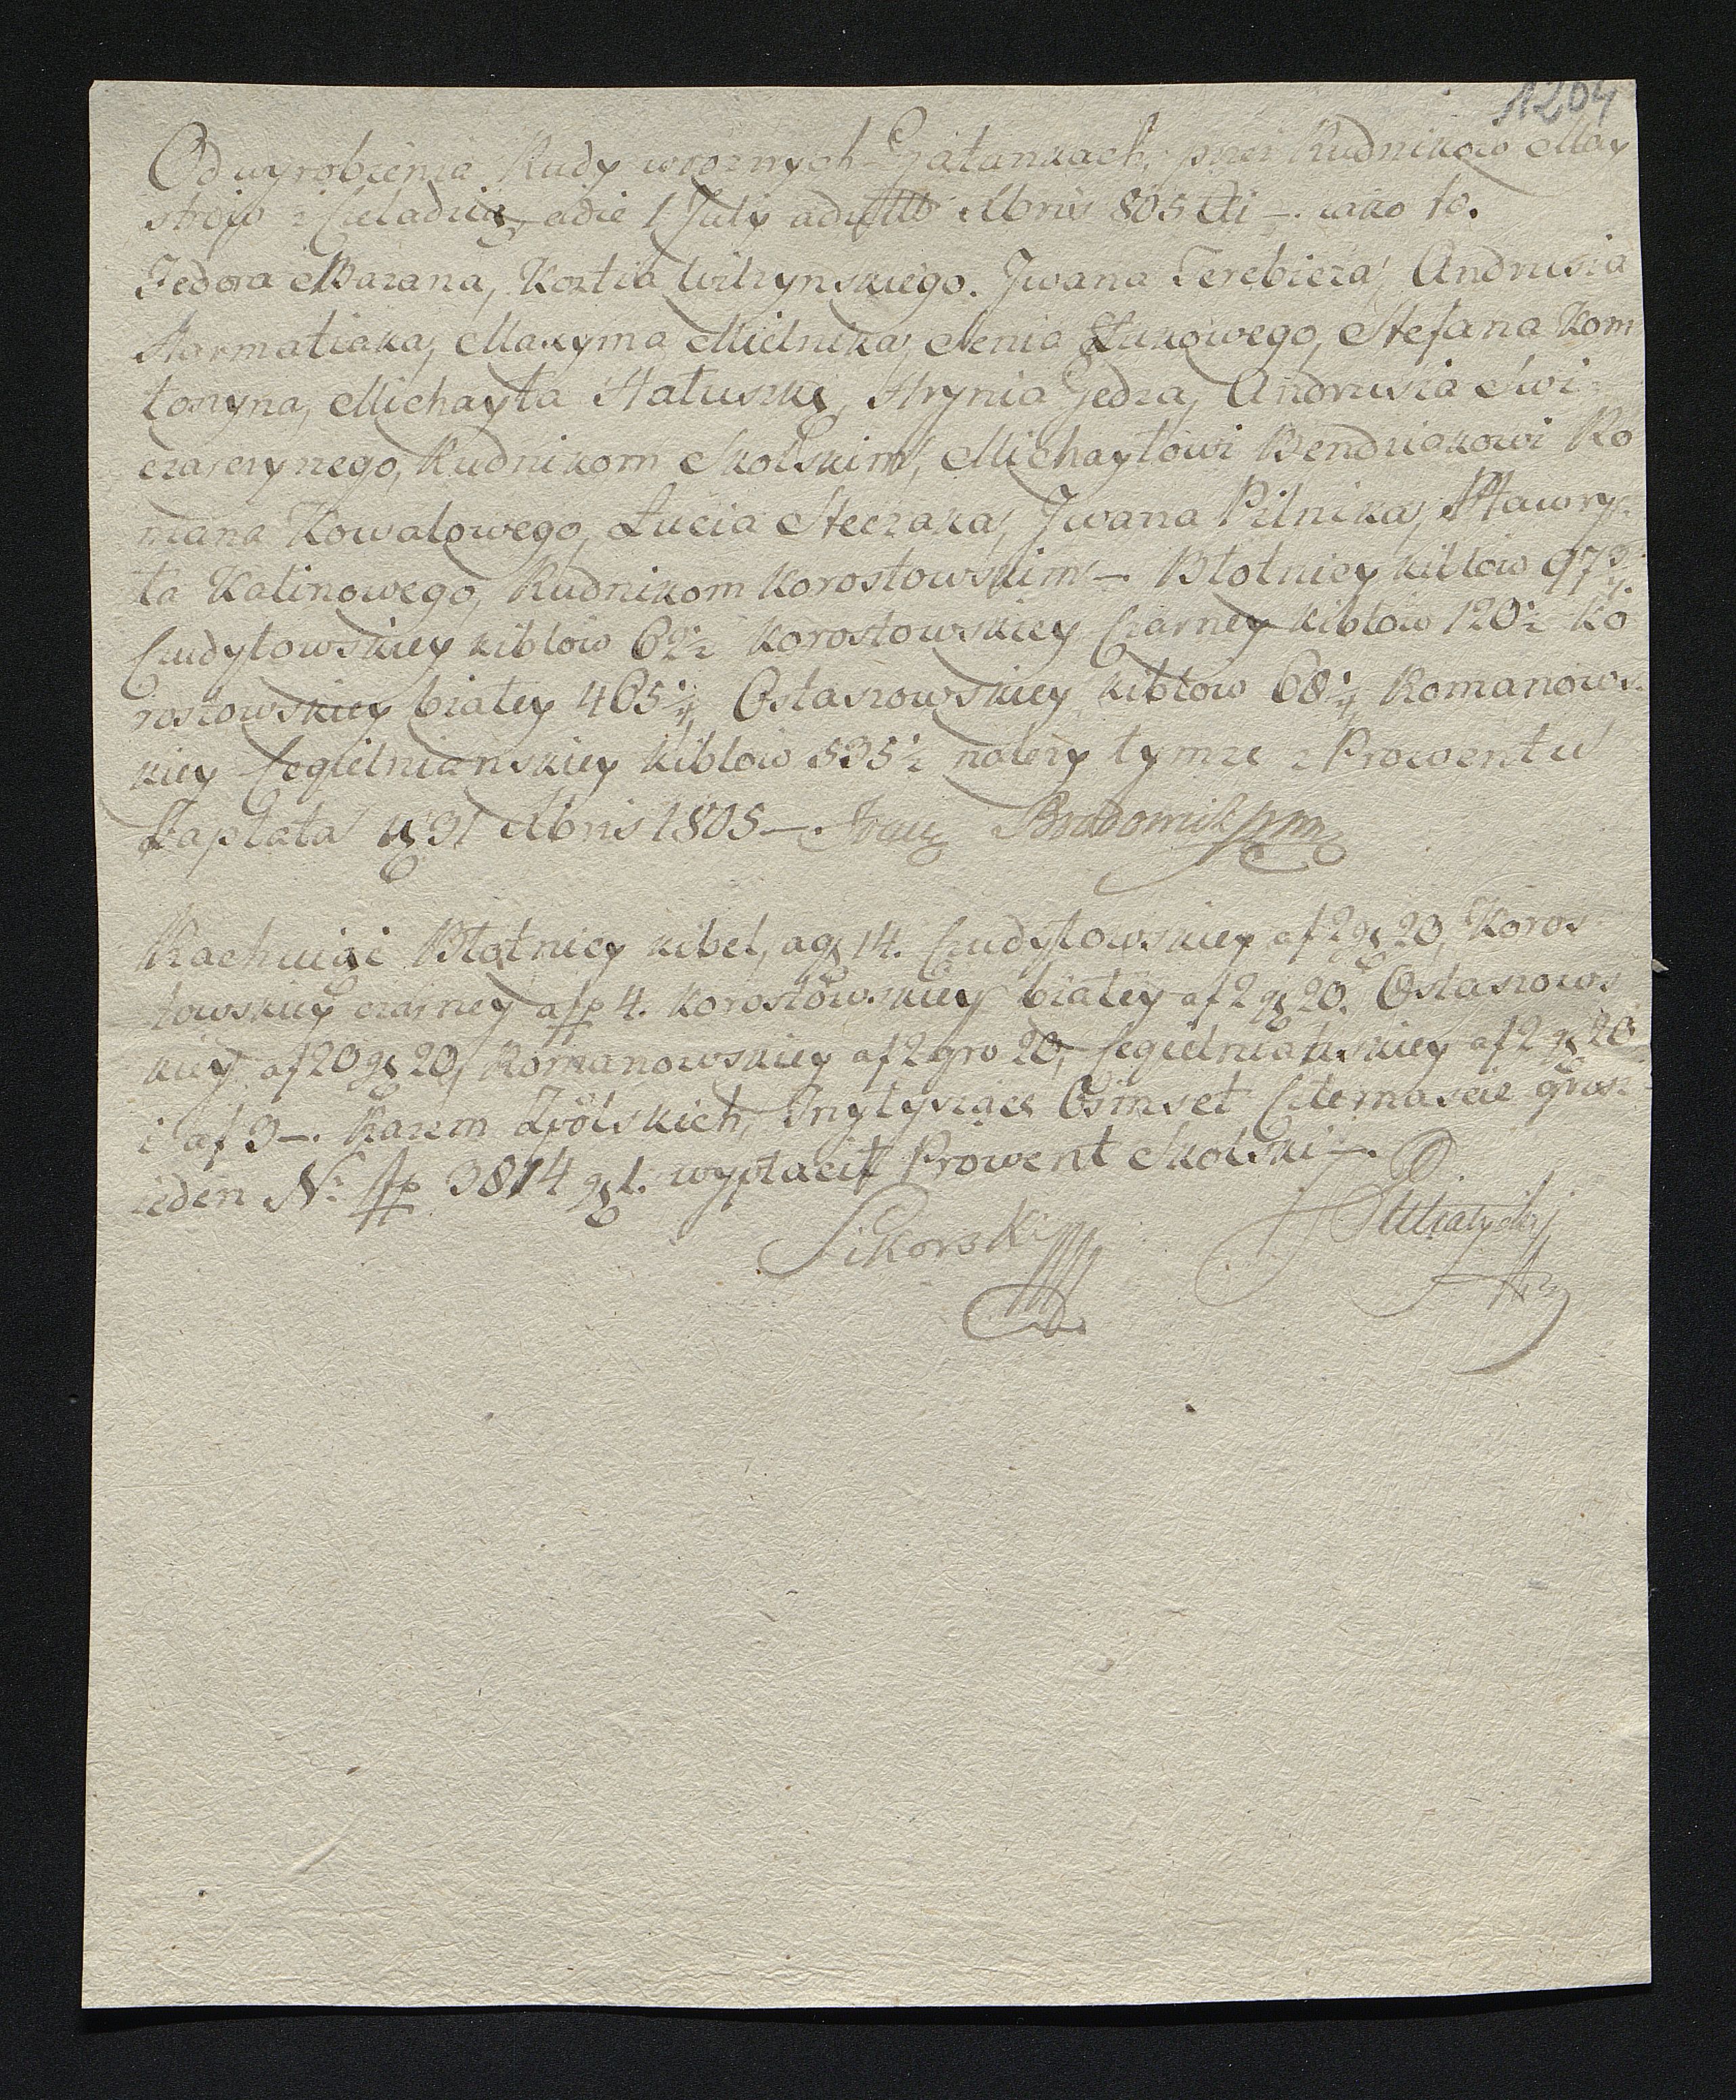 1204
Od wyrobienia Rudy wroznych Gatankach, przez Rudnikow May
strow z Czeladzią adie 1 July ad ult Xbris 805 tti –. iako to.
Fedora Barana, Kostia Wilzynskiego. Jwana Terebieza, Andrusia
Harmatiaka, Maxyma Mielnika, Senia Łukowego, Stefana Kom
toszyna, Michayła Hałuszki, Hrynia Gedza, Andrusia Swi
czaszynego, Rudnikom Skolskim, Michayłowi Bendziakowi Ro
mana Kowalowego, Łucia Steczaka, Jwana Pilnika, Hawry
ła Kalinowego, Rudnikom Korostowskim –. Błotnicy kibłow 973
Czudyłowskiey kibłow 62½ Korostowskiey Czarney kibłow 120½ Ko
rostowskiey białey 465¼, Ostaszowskiey kibłow 68¼, Romanows
kiey Cegielnianskiey kibłow 535½ nalezy tymze z Prowentu
Zapłata 31 Xbris 1805 –.
Rachuiąc Błotnicy kibel, a gr 14. Czudyłowskiey af 2 gr 20, Koros
towskiey czarney afp 4. Korostowskiey białey af 2 gr 20. Ostaszows
kiey af 20 gr 20, Romanowskiey af 2 gro 20, Cegielnianskiey af 2 gr 20
i af 3 –. Razem Złpolskich, Trzytysiące Osmset Czternascie grosz
ieden No fp 3814 gr 1. wypłacił Prowent Skolski –.
Sikorski